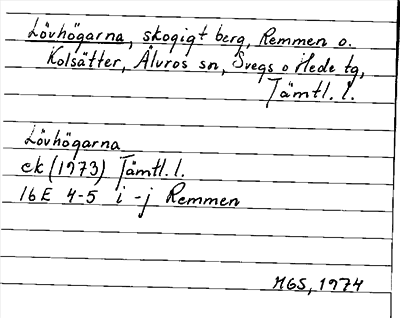 Lövhögarna, skogigt berg, Remmen o.
Kolsätter, Älvros sn, Svegs o Hede tg,
Jämtl. l.
Lövhögarna
ek (1973) Jämtl. l.
16E 4-5 i-j Remmen
MGS, 1974